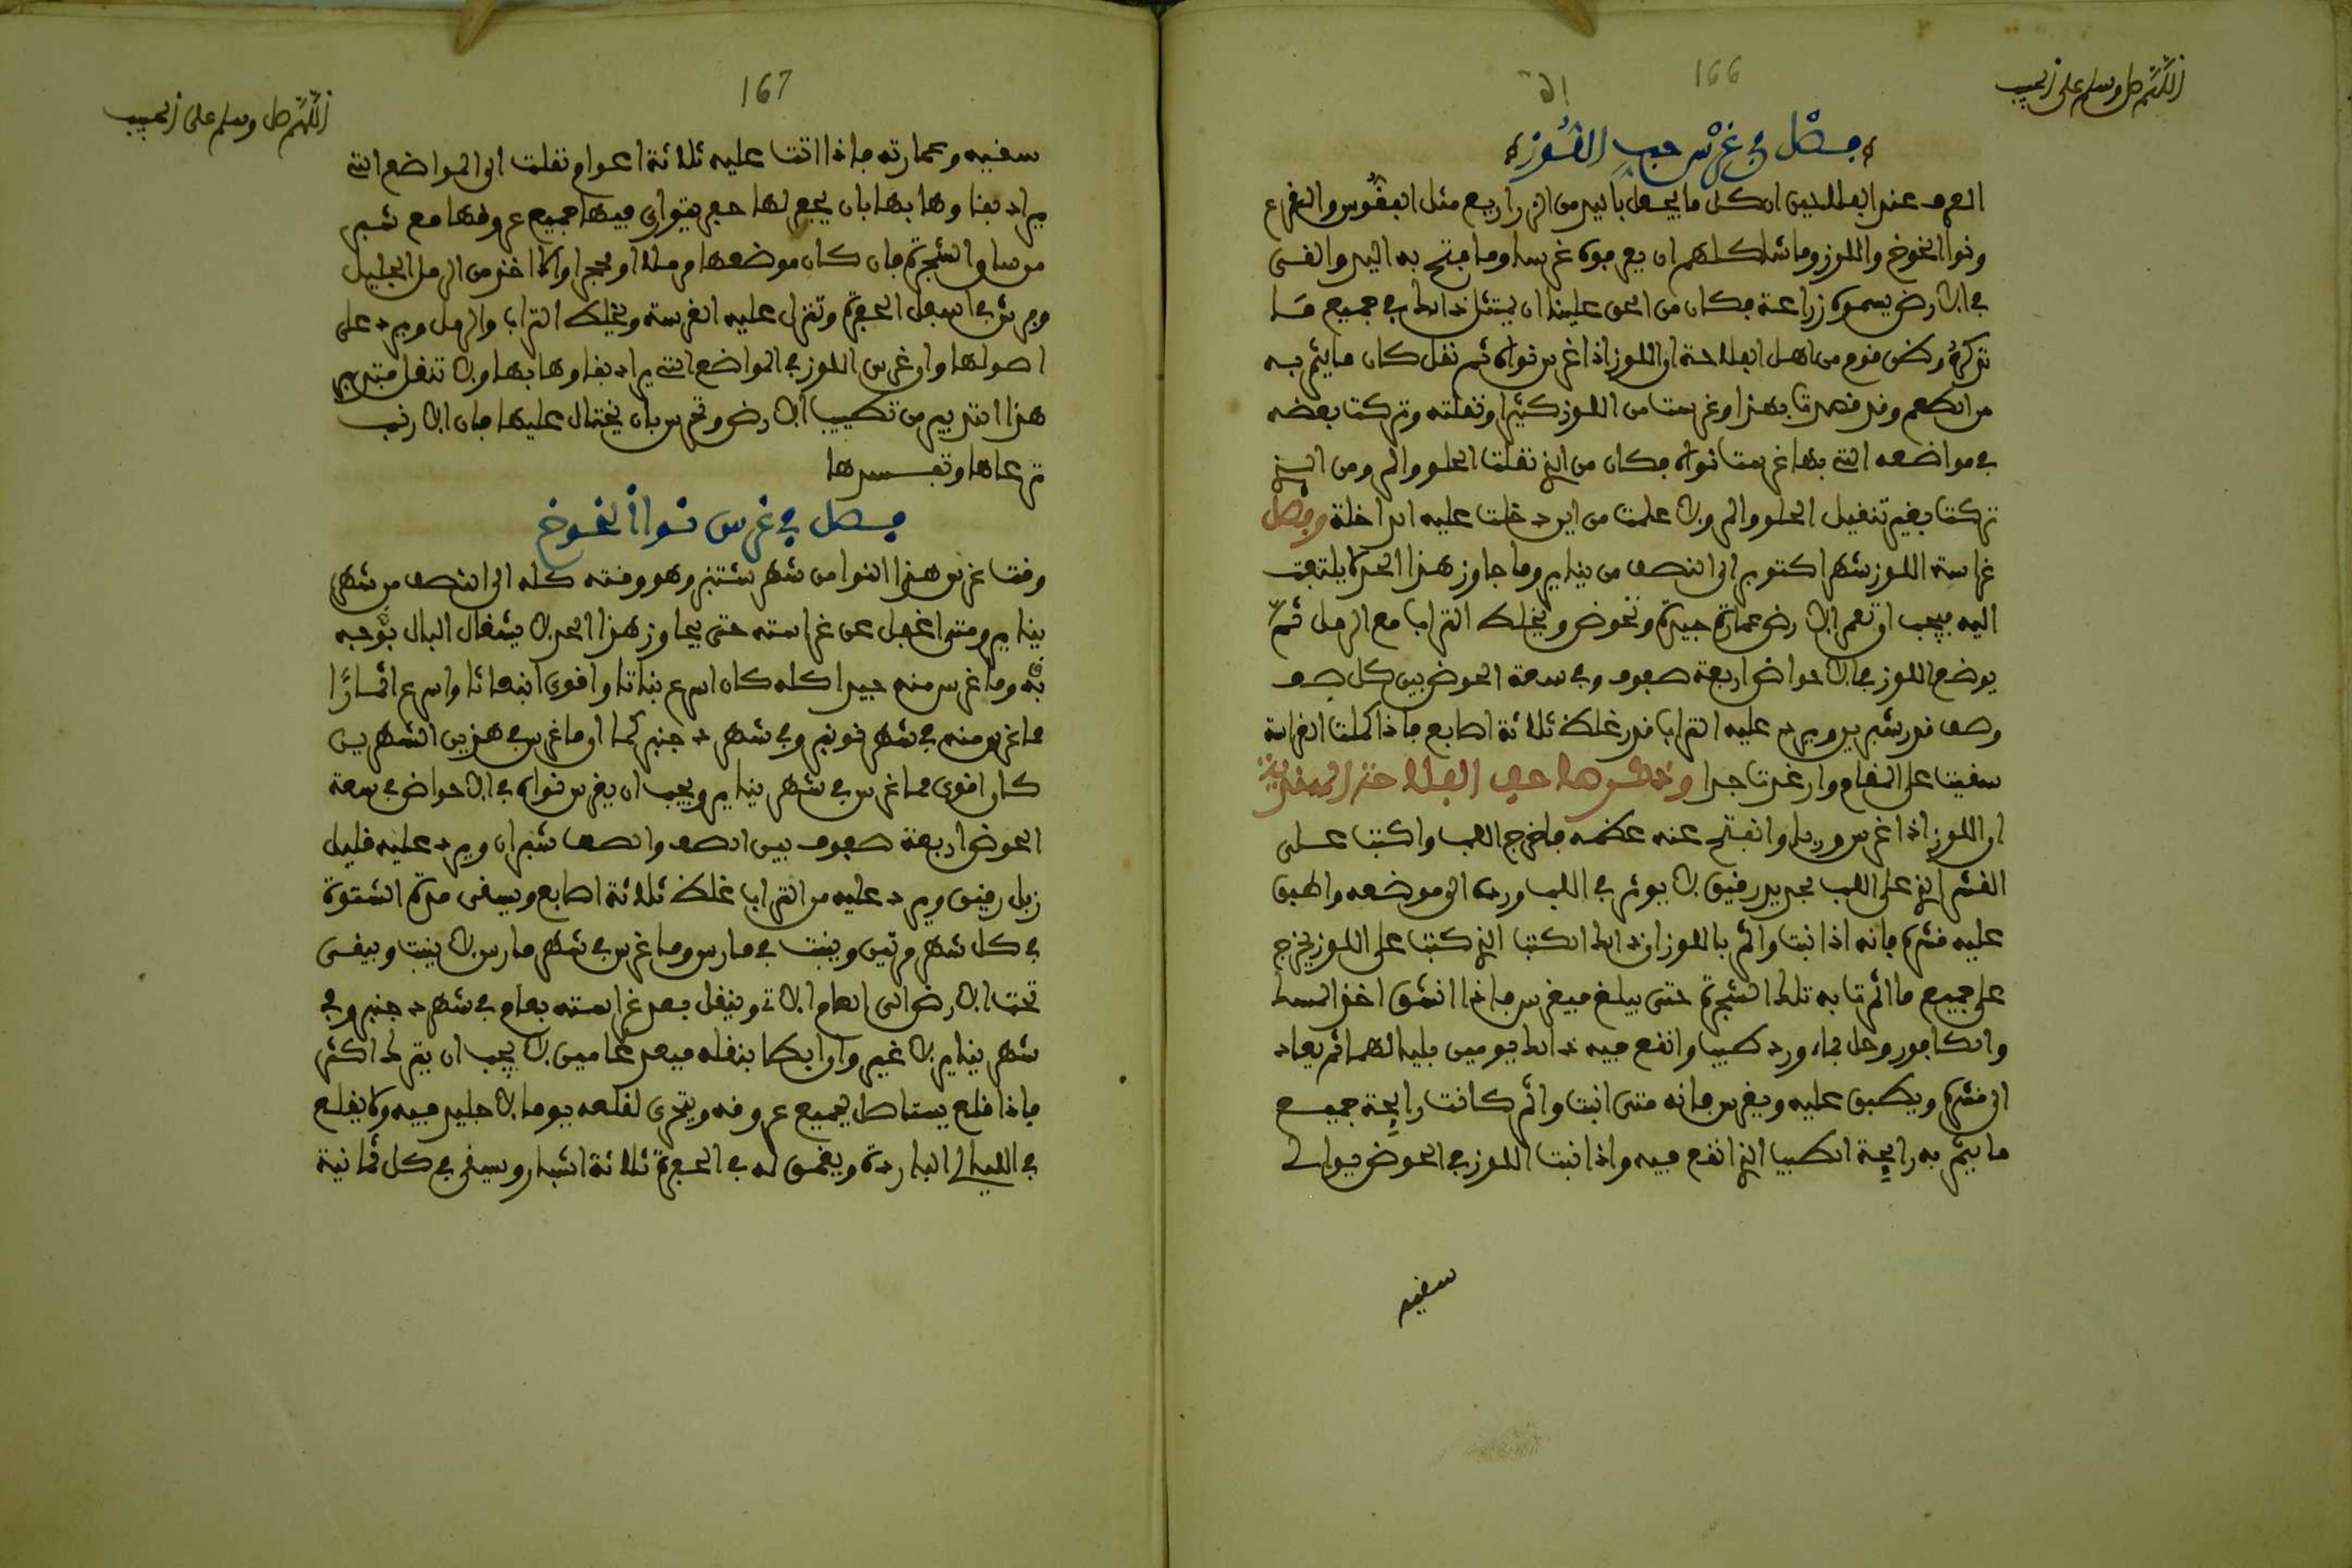 اللهم صل وسلم على الحبيب
166
فصل في غرس حب اللوز
العرف عند الفلاحين ان كل ما يجعل باليد من الزراريع مثل الفقوس والقرع
ونوا الخوخ واللوز وما شاكلهم ان يعرفوه غرسا وما فتح به اليد والقى
في الارض يسموه زراعة فكان من الحق علينا ان يمتثل ذلك في جميع مـا
نذكره وظن قوم من اهل الفلاحة ان اللوز اذا غرس نواه ثم نقل كان ما يثمر به
مر الطعم وقد قصدت بهذا وغرست من اللوز كثيرا ونقلته وتركت بعضه
في مواضعه التي بها غرست نواه فكان من الذي نقلت الحلو والمر ومن الذي
تركت بغير تنقيل الحلو والمر ولا علمت من اين دخلت عليه الداخلة وفصل
غراسة اللوز شهر اكتوبر الى النصف من يناير وما جاوز هذا الحد لا يلتفت
اليه فيجب ان تعمر الارض عمارة جيدة وتحوض ويخلط التراب مع الرمل ثم
يوضع اللوز في الاحواض اربعة صفوف وفي سعة الحوض بين كل صف
وصف قدر شبرين ويرد عليه التراب قدر غلظ ثلاثة اصابع فاذا كملت الغراسة
سقيت على المقام وان غدت جدا وذكر صاحب الفلاحة
ان اللوز اذا غرس وربا وانفتح عنه عظمه فاخرج اللب واكتب عـلى
القشر الذي على اللب بحديد رقيق لا يوثر في اللب ورده الى موضعه واطبق
عليه قشره فانه اذا نبت واثمر باللوز ان ذلك الكتب الذي كتبت على اللوز يخرج
على جميع ما اثمرت به تلك الشجرة حتى يبلغ فيغرس فاذا انشق اخذ المسك
والكافور وحل بماء ورد طيب وانقع فيه ذلك يومين بليالهما ثم يعاد
الى قشره ويطبق عليه ويغرس فانه متى انبت واثمر كانت رايحة جميـع
ما يثمر به رايحة الطيب الذي انقع فيه واذا نبت اللوز في الحوض فيوالى
سقيه
اللهم صل وسلم على الحبيب
167
سقيه وعمارته فاذا اتت عليه ثلاثة اعوام ونقلت الى المواضع التي
يراد بقاوها بها بان يحفر لها حفر يتوارى فيها جميع عروقها مع شبر
من ساق الشجرة فان كان موضعها رملا او محجرا والا اخذ من الرمل الجليل
وفرش في اسفل الحفرة وتنزل عليه الغرسة ويخلط التراب والرمل ويرد على
اصولها وان غرس اللوز في المواضع التي يراد بقاوها بها ولا تنقل فتدبر
هذا التدبير من تطييب الارض وتحرس بان يحتال عليها فان الارنب
ترعاها وتفسدها
فصل في غرس نوا الخوخ
وقت غرس هذا النوا من شهر شتنبر وهو وقته كله الى النصف من شهر
يناير ومتى اغفل عن غراسته حتى يجاوز هذا الحد لا يشغل البال بوجه
به وما غرس منه جيدا كله كان اسرع نباتا واقوى انبعاثا واسرع اثمارا
مما غرس منه في شهر نونبر وفي شهر دجنبر كما ان ما غرس في هذين الشهرين
كان اقوى مما غرس في شهر يناير ويجب ان يغرس نواه في الاحواض في سعة
الحوض اربعة صفوف بين الصف والصف شبران ويرد عليه قليل
زبل رقيق ويرد عليه من التراب غلظ ثلاثة اصابع ويسقى مدة الشتوة
في كل شهر مرتين وينبت في مارس وما غرس في شهر مارس لا ينبت ويبقى
تحت الارض الى العام الاتي وينقل بعد غراسته بعام في شهر دجنبر وفي
شهر يناير لا غير وان ابطا بنقله فبعد عامين لا يجب ان يترك اكثر
فاذا قلع يستاصل بجميع عروقه ويتحرى لقلعه يوما لا جليد فيه ولا يقلع
في الليالي الباردة ويعمق له في الحفرة ثلاثة اشبار ويسقى في كل ثمانية